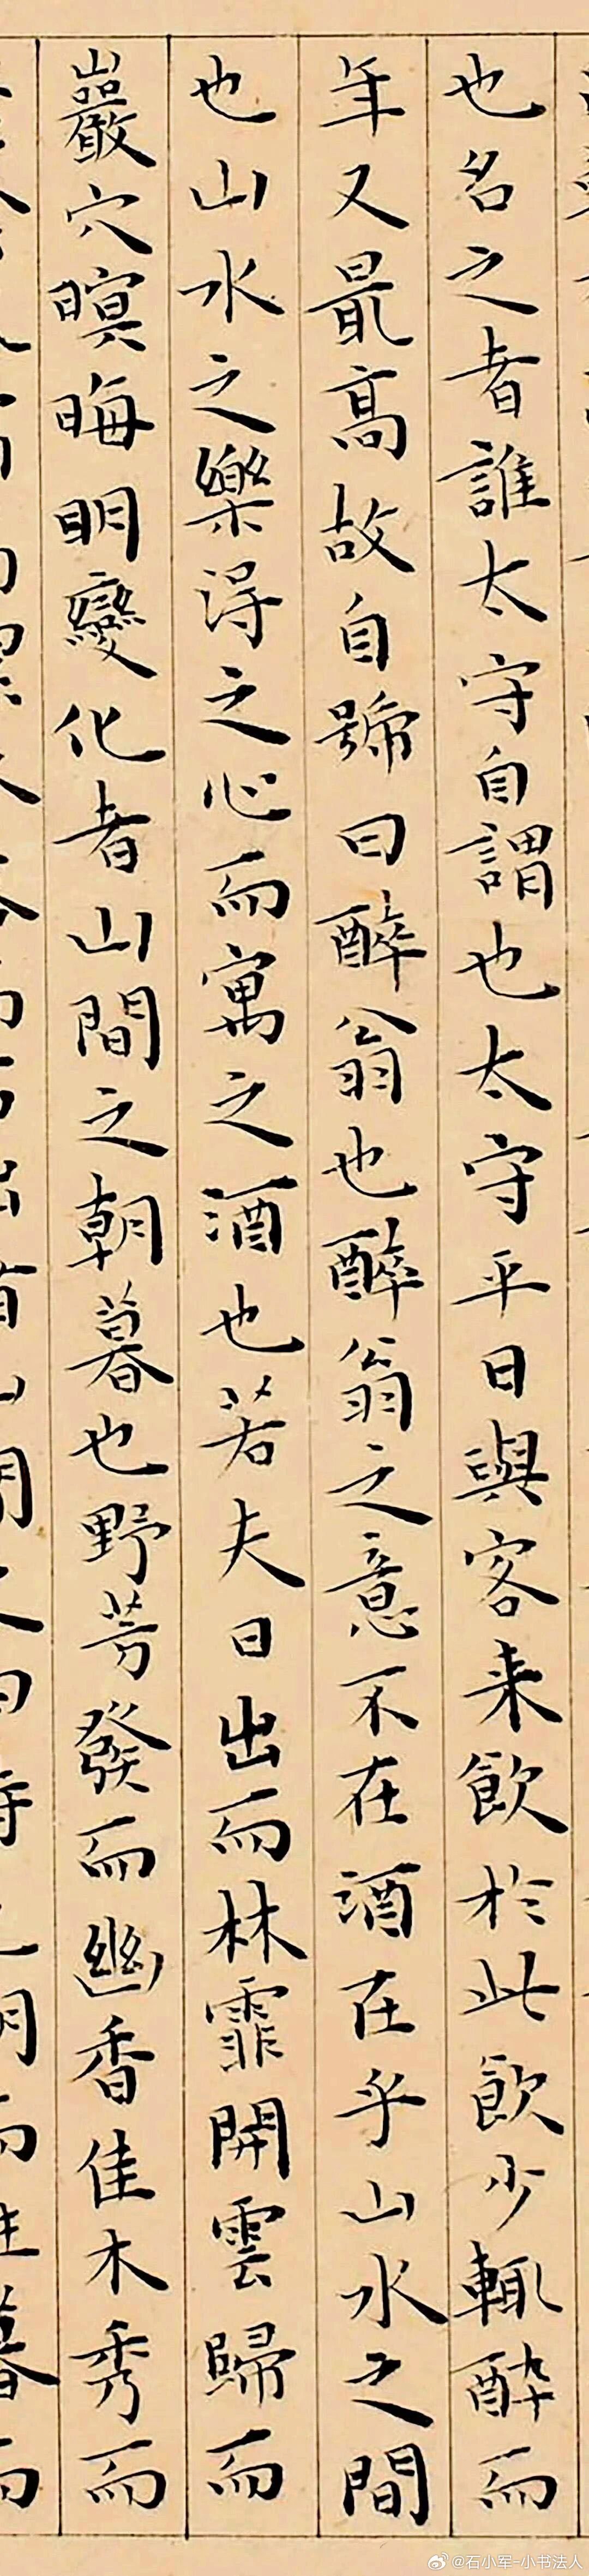 也名之者誰太守自謂也太守平日與客来飲於此飲少輒酔而
年又最高故自號曰醉翁也醉翁之意不在酒在乎山水之間
也山水之樂得之心而寓之酒也若夫日出而林霏開雲歸而
巖穴暝晦明變化者山間之朝暮也野芳發而幽香佳木秀而
@石小军-小书法人